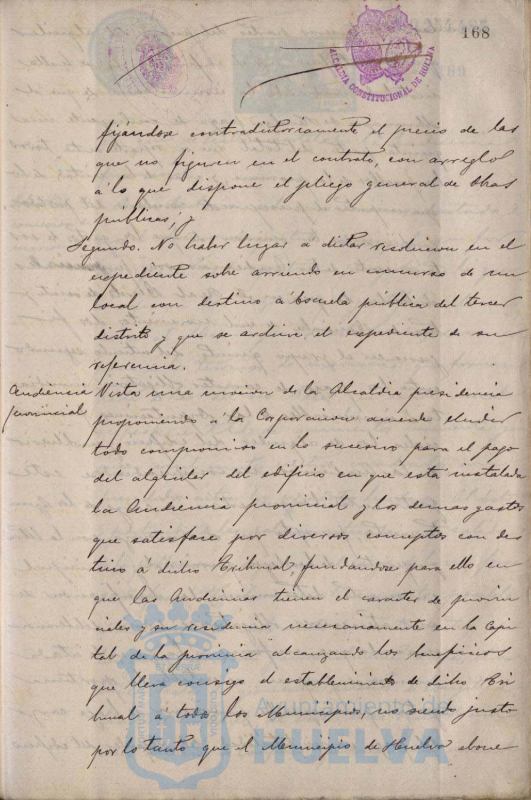 168
ALCALDIA CONSTITUCIONAL DE HUELVA
fijándose contradictoriamente el precio de las
que no figuren en el contrato, con arreglo
á lo que dispone el pliego general de Obras
públicas; y
Segundo. No haber lugar á dictar resolucion en el
expediente sobre arriendo en concurso de un
local con destino á Escuela pública del tercer
distrito y que se archive el expediente de su
referencia.
Audiencia
provincial
Vista una mocion de la Alcaldia presidencia
proponiendo á la Corporacion acuerde eludir
todo compromiso en lo sucesivo para el pago
del alquiler del edificio en que está instalada
la Audiencia provincial y los demas gastos
que satisface por diversos conceptos con des
tino á dicho Tribunal, fundándose para ello en
que las Audiencias tienen el caracter de provin
ciales y su residencia necesariamente en la Capi
tal de la provincia alcanzando los beneficios
que lleva consigo el establecimiento de dicho Tri
bunal á todos los Municipios, no siendo justo
por lo tanto que el Municipio de Huelva abone
Ayuntamiento de
HUELVA